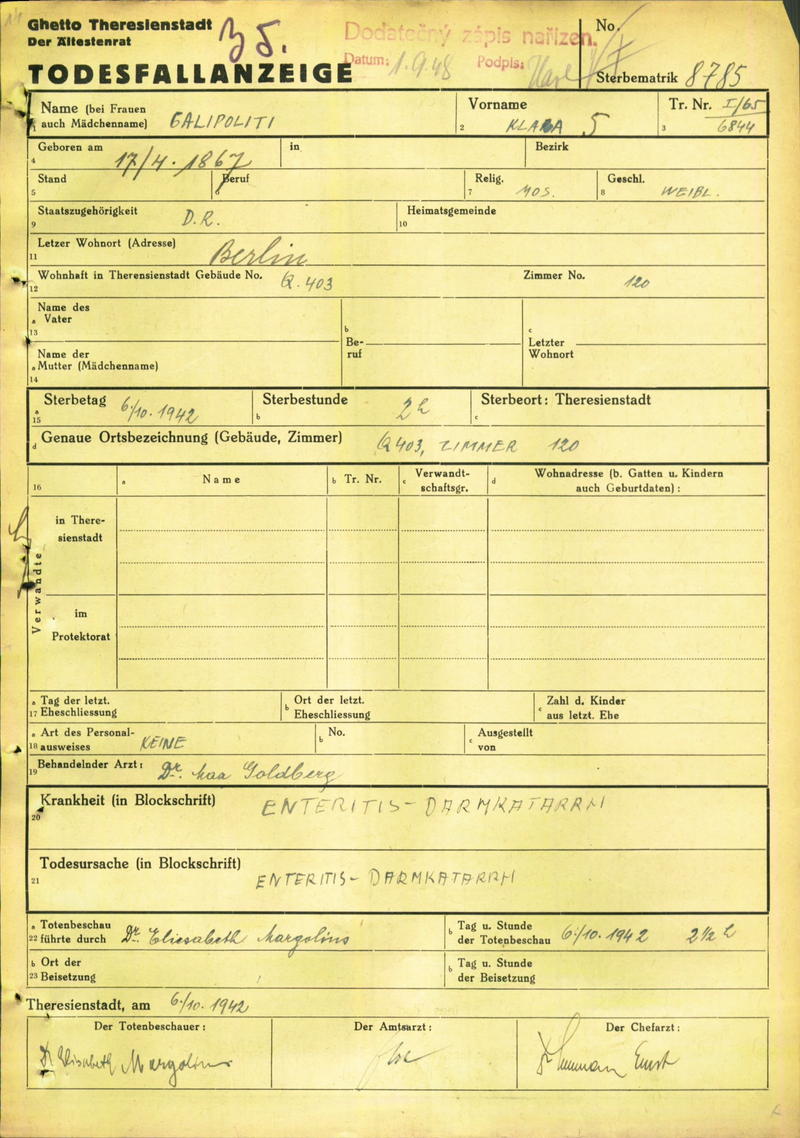 Ghetto Theresienstadt
Der Ältestenrat
Dodatečný zápis nařízen.
Datum: 1.9.48 Podpis:
No.
TODESFALLANZEIGE
Sterbematrik 8785
Name (bei Frauen auch Mädchenname) GALIPOLITI
1
Vorname KLARA S
2
Tr. Nr. I/65
3 6844
Geboren am 17/4. 1867
4
in
Bezirk
Stand
5
Beruf
6
Relig. MOS.
7
Geschl. WEIBL.
8
Staatszugehörigkeit D.R.
9
Heimatsgemeinde
10
Letzer Wohnort (Adresse) Berlin
11
Wohnhaft in Therensienstadt Gebäude No. Q.403 Zimmer No. 120
12
Name des
a Vater
13
Name der
a Mutter (Mädchenname)
14
b
Be-
ruf
c
Letzter
Wohnort
Sterbetag 6/10. 1942
a
15
Sterbestunde 2h
b
Sterbeort: Theresienstadt
c
d Genaue Ortsbezeichnung (Gebäude, Zimmer) Q 403, ZIMMER 120
16
a Name
b Tr. Nr.
c Verwandt-
schaftsgr.
d Wohnadresse (b. Gatten u. Kindern
auch Geburtdaten) :
Verwandte
in There-
sienstadt
im
Protektorat
a Tag der letzt.
17 Eheschliessung
b Ort der letzt.
Eheschliessung
c Zahl d. Kinder
aus letzt. Ehe
a Art des Personal-
18 ausweises KEINE
b No.
c Ausgestellt
von
Behandelnder Arzt: Dr. Goldberg
19
Krankheit (in Blockschrift) ENTERITIS - DARMKATARRH
20
Todesursache (in Blockschrift)
21 ENTERITIS - DARMKATARRH
a Totenbeschau
22 führte durch Dr. Eliesabeth Margolins
b Tag u. Stunde
der Totenbeschau 6/10. 1942 2½ h
b Ort der
23 Beisetzung
b Tag u. Stunde
der Beisetzung
Theresienstadt, am 6/10. 1942
Der Totenbeschauer :
Der Amtsarzt :
Der Chefarzt :
Dr Elisabeth Margolins
Ernst